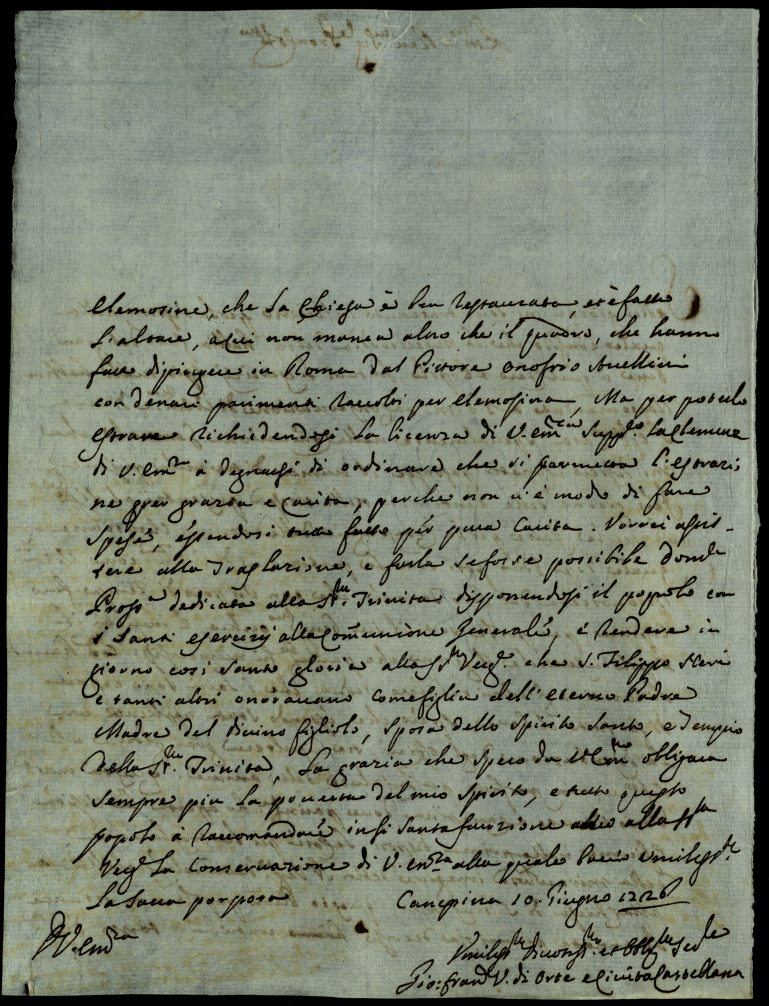 elemosine, che la Chiesa è ben restaurata, et è fatto
l'altare, a cui non manca altro che il quadro, che hanno
fatto dipingere in Roma dal Pittore Onofrio Avellini
con denari parimenti raccolti per elemosina, Ma per poterlo
estrarre richiedendosi la licenza di V. Em.za supp.co la Clemenza
di V. Em.za à degnarsi di ordinare che si permetta l'estrazio
ne per grazia e carità, perche non vi è modo di fare
spesa, essendosi tutto fatto per pura Carità. Vorrei assis-
tere alla Traslazione, e farla se fosse possibile Dom.ca
Pross.a dedicata alla SS.ma Trinità disponendosi il popolo con
i Santi esercizij alla Com̄unione Generale, è rendere in
giorno così Santo gloria alla SS.ma Verg.e che S. Filippo Neri
e tanti altri onoravano come figlia dell'eterno Padre
Madre del divino figliolo, sposa dello Spirito Santo, e Tempio
della SS.ma Trinità, La grazia che spero da V. Em.za obligarà
sempre più la povertà del mio spirito, e tutto questo
popolo à raccomandare in sì Santa funzione alla SS.ma
Verg.e la Conservazione di V. Em.za alla quale bacio umiliss.te
la Sacra porpora Canepina 10. Giugno 1726
D V. Em.za
Umiliss.mo Divotiss.mo et Obblig.mo Ser.e
Gio: Fran.co V. di Orte e Civita Castellana